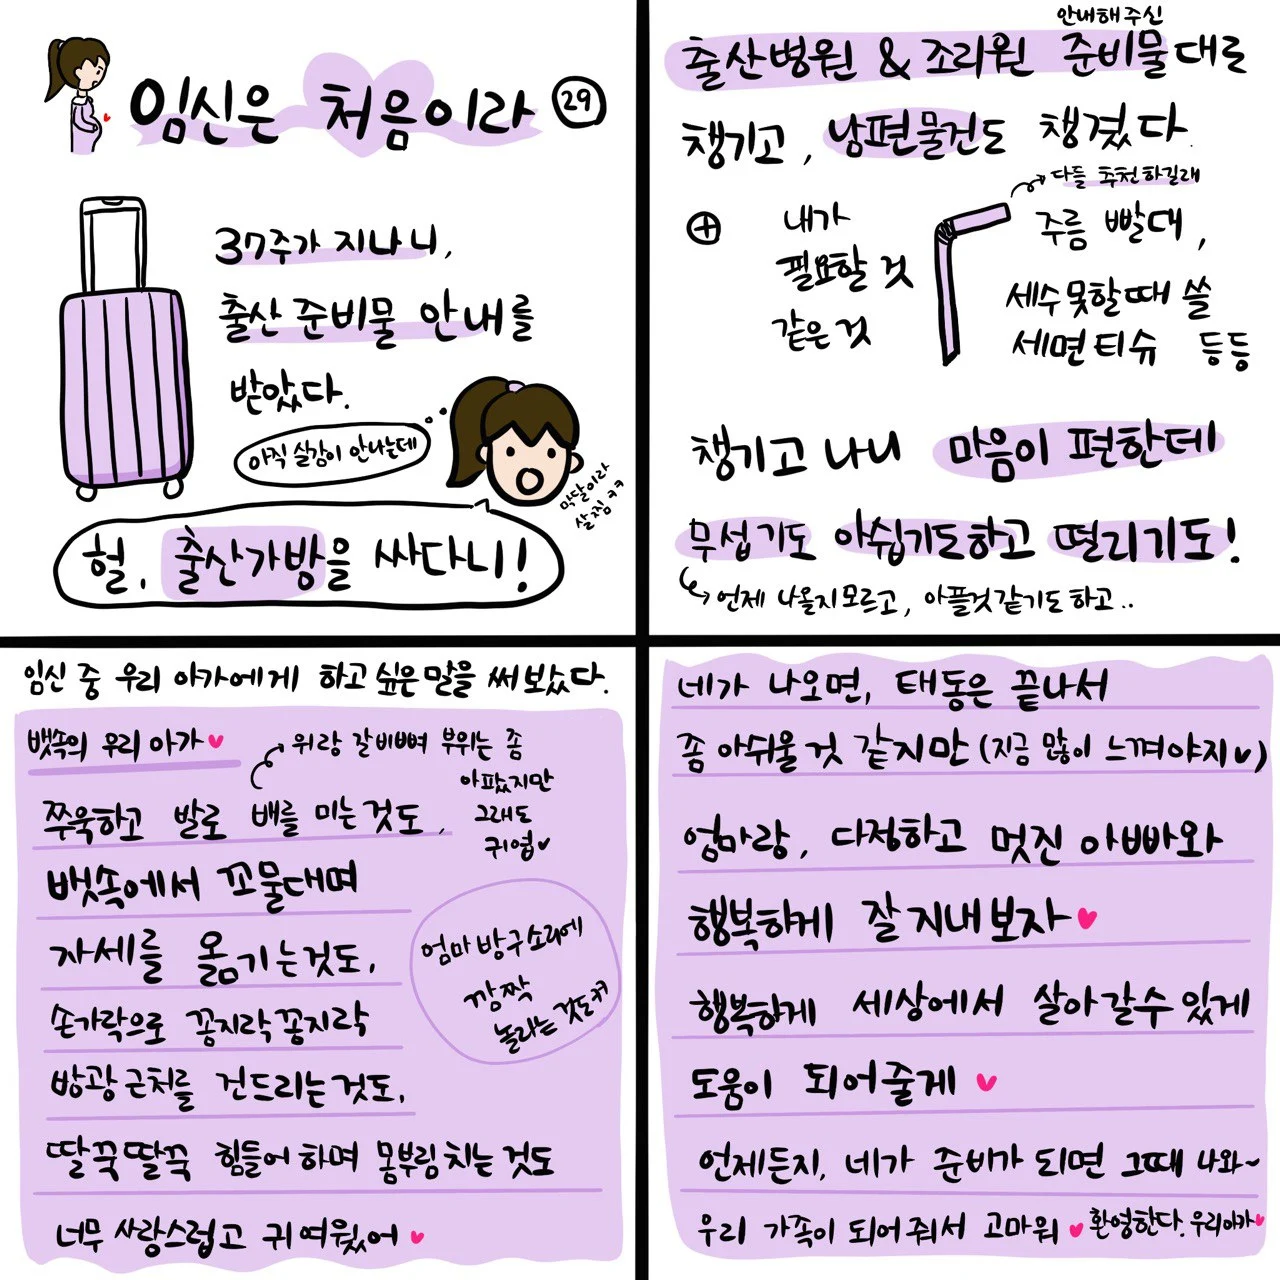 임신은 처음이라 29
37주가 지나니,
출산 준비물 안내를
받았다.
아직 실감이 안나는데
막달이라
살찜ㅋㅋ
헐, 출산가방을 싸다니!
안내해주신
출산병원 & 조리원 준비물대로
챙기고, 남편물건도 챙겼다.
다들 추천하길래
+ 내가
필요할 것
같은 것
주름 빨대,
세수 못할때 쓸
세면티슈 등등
챙기고 나니 마음이 편한데
무섭기도 아쉽기도하고 떨리기도!
언제 나올지모르고, 아플것같기도하고..
임신 중 우리 아가에게 하고 싶은 말을 써 보았다.
뱃속의 우리 아가♥
위랑 갈비뼈 부위는 좀
아팠지만
그래도
귀엽♥
쭈욱하고 발로 배를 미는것도,
뱃속에서 꼬물대며
자세를 옮기는것도,
엄마 방구소리에
깜짝
놀라는 것도ㅋ
손가락으로 꼼지락꼼지락
방광근처를 건드리는것도,
딸꾹딸꾹 힘들어하며 몸부림치는 것도
너무 사랑스럽고 귀여웠어♥
네가 나오면, 태동은 끝나서
좀 아쉬울것 같지만 (지금 많이 느껴야지♥)
엄마랑, 다정하고 멋진 아빠와
행복하게 잘 지내보자♥
행복하게 세상에서 살아갈수 있게
도움이 되어줄게♥
언제든지, 네가 준비가 되면 그때 나와~
우리 가족이 되어줘서 고마워♥ 환영한다. 우리아가♥